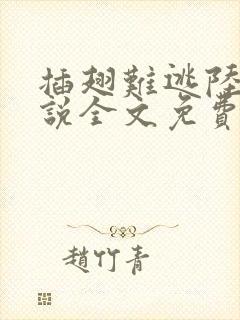 插翅難逃陸
說全文免費
趙竹青